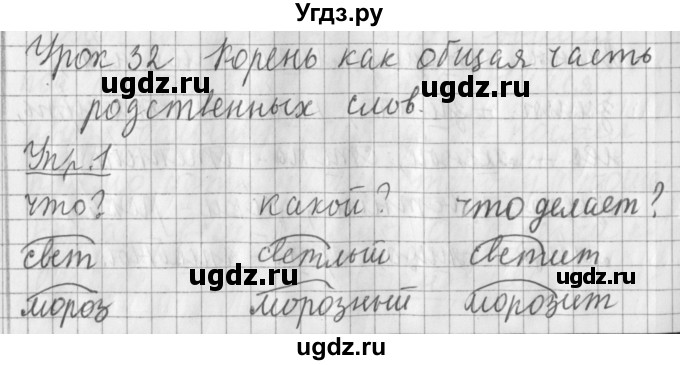 Угдз.ру
Урок 32 Корень как общая часть
ugdz.ru ugdz.ru
родственных слов.
Упр. 1
ugdz.ru
что? какой? что делает?
свет светлый светит
ugdz.ru ugdz.ru
мороз морозный морозит
ugdz.ru
ugdz.ru